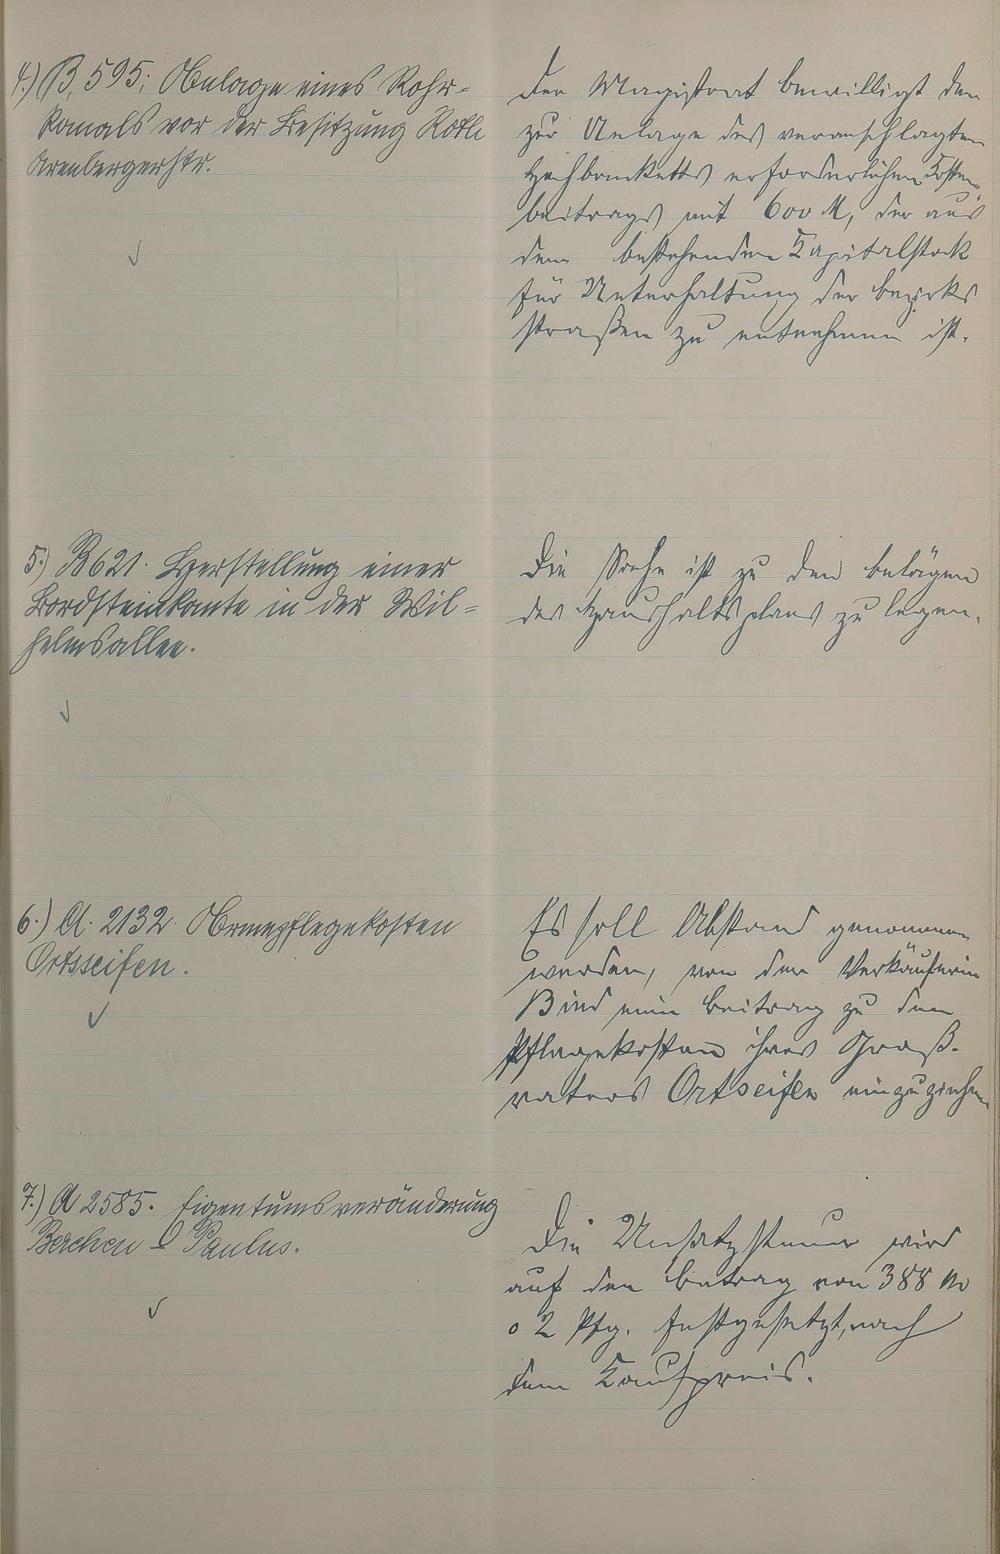 4.) B. 595: Anlage eines Rohr-
kanals vor der Besitzung Roth
Arenbergerstr.
Der Magistrat bewilligt den
zur Anlage des veranschlagten
Hochbanketts erforderlichen Kosten-
beitrags mit 600 M, der aus
dem bestehenden Kapitalstock
für Unterhaltung der Bezirks
straßen zu entnehmen ist.
5.) B 621. Herstellung einer
Bordsteinkante in der Wil-
helmsallee.
Die Sache ist zu den Belägen
des Haushaltsplans zu legen.
6.) A. 2132 Armenpflegekosten
Ortsseifen.
Es soll Abstand genommen
werden, von der Verkäuferin
Bind einen Beitrag zu den
Pflegekosten ihres Groß-
vaters Ortseifen einzuziehen
7.) A 2585. Eigentumsveränderung
Berchen & Paulus.
Die Umsatzsteuer wird
auf den Betrag von 388 M
02 Pfg. festgesetzt, nach
dem Kaufpreis.